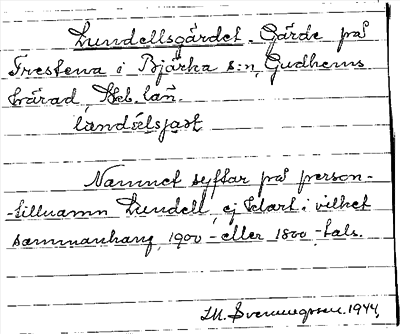 Lundellsgärdet. Gärde på
Frestena i Bjärka s:n, Gudhems
härad, Skb. län.
Namnet syftar på person-
-tillnamn Lundell, ej klart i vilket
sammanhang, 1900- eller 1800-tals.
M. Svenungsson. 1944.